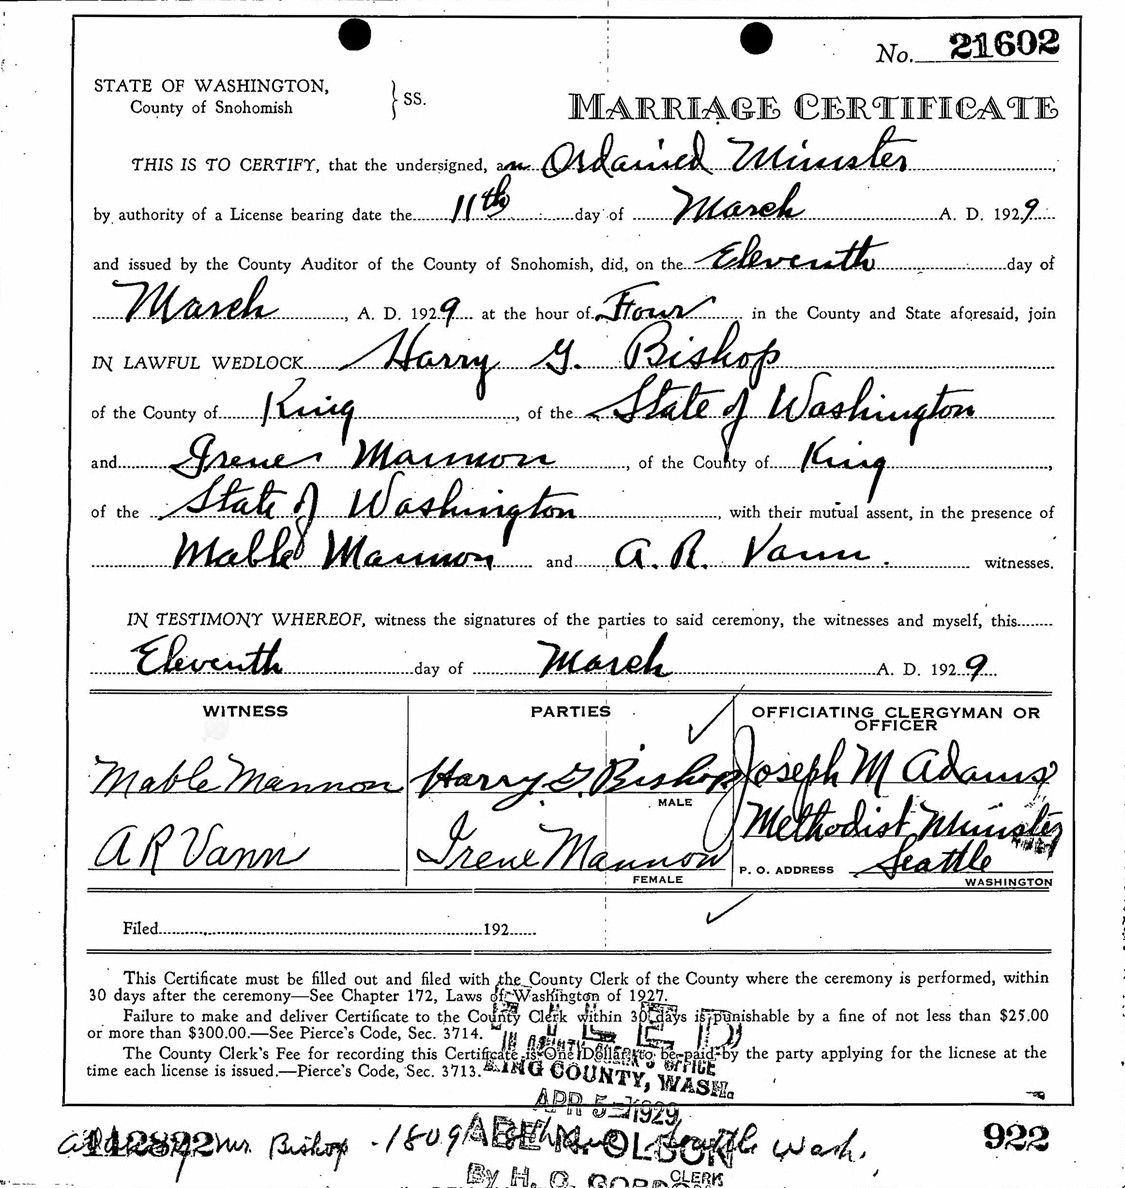 No. 21602
STATE OF WASHINGTON,
County of Snohomish } SS.
MARRIAGE CERTIFICATE
THIS IS TO CERTIFY, that the undersigned, an Ordained Minister,
by authority of a License bearing date the 11th day of March A. D. 1929
and issued by the County Auditor of the County of Snohomish, did, on the Eleventh day of
March, A. D. 1929 at the hour of Four in the County and State aforesaid, join
IN LAWFUL WEDLOCK Harry G. Bishop
of the County of King, of the State of Washington
and Irene Mannon, of the County of King,
of the State of Washington, with their mutual assent, in the presence of
Mable Mannon and A. R. Vann. witnesses.
IN TESTIMONY WHEREOF, witness the signatures of the parties to said ceremony, the witnesses and myself, this
Eleventh day of March A. D. 1929.
WITNESS PARTIES OFFICIATING CLERGYMAN OR OFFICER
Mable Mannon Harry G. Bishop Joseph M Adams
MALE
Methodist Minister
A R Vann Irene Mannon P. O. ADDRESS Seattle
FEMALE WASHINGTON
Filed 192
This Certificate must be filled out and filed with the County Clerk of the County where the ceremony is performed, within
30 days after the ceremony—See Chapter 172, Laws of Washington of 1927.
Failure to make and deliver Certificate to the County Clerk within 30 days is punishable by a fine of not less than $25.00
or more than $300.00.—See Pierce's Code, Sec. 3714.
The County Clerk's Fee for recording this Certificate is One Dollar to be paid by the party applying for the licnese at the
time each license is issued.—Pierce's Code, Sec. 3713.
FILED
IN COUNTY CLERK'S OFFICE
KING COUNTY, WASH.
APR 5-1929
ABE N. OLSON
CLERK
By H. C. GORDON
112822 922
Mrs. Bishop - 1809 Seattle Wash.